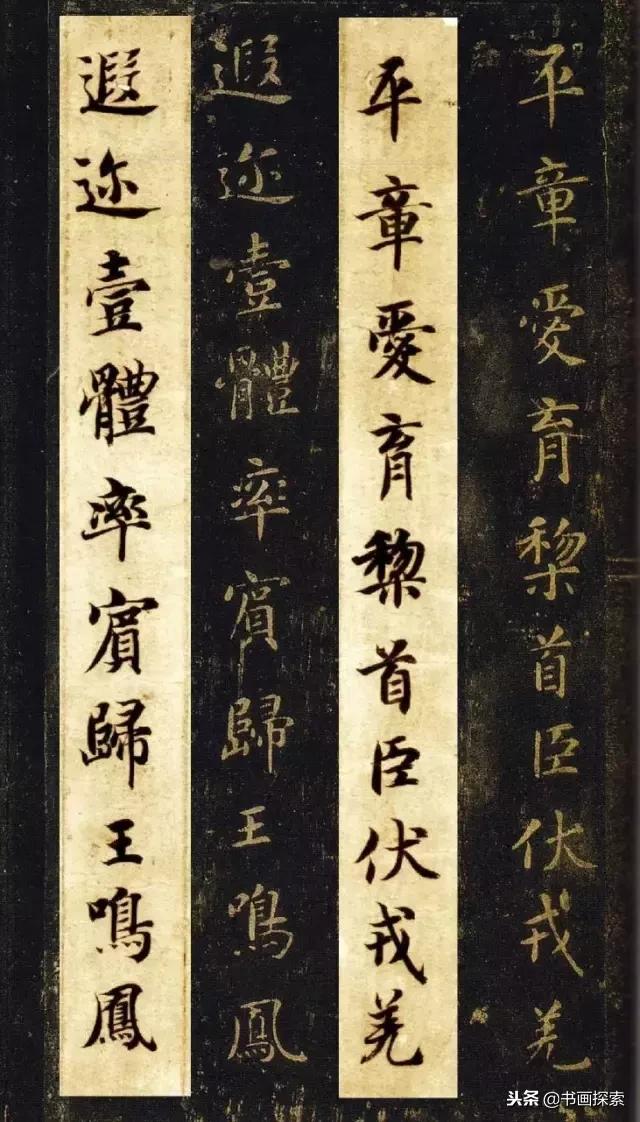 平章愛育黎首臣伏戎羌
平章愛育黎首臣伏戎羌
遐迩壹體率賓歸王鳴鳳
遐迩壹體率賓歸王鳴鳳
头条 @书画探索